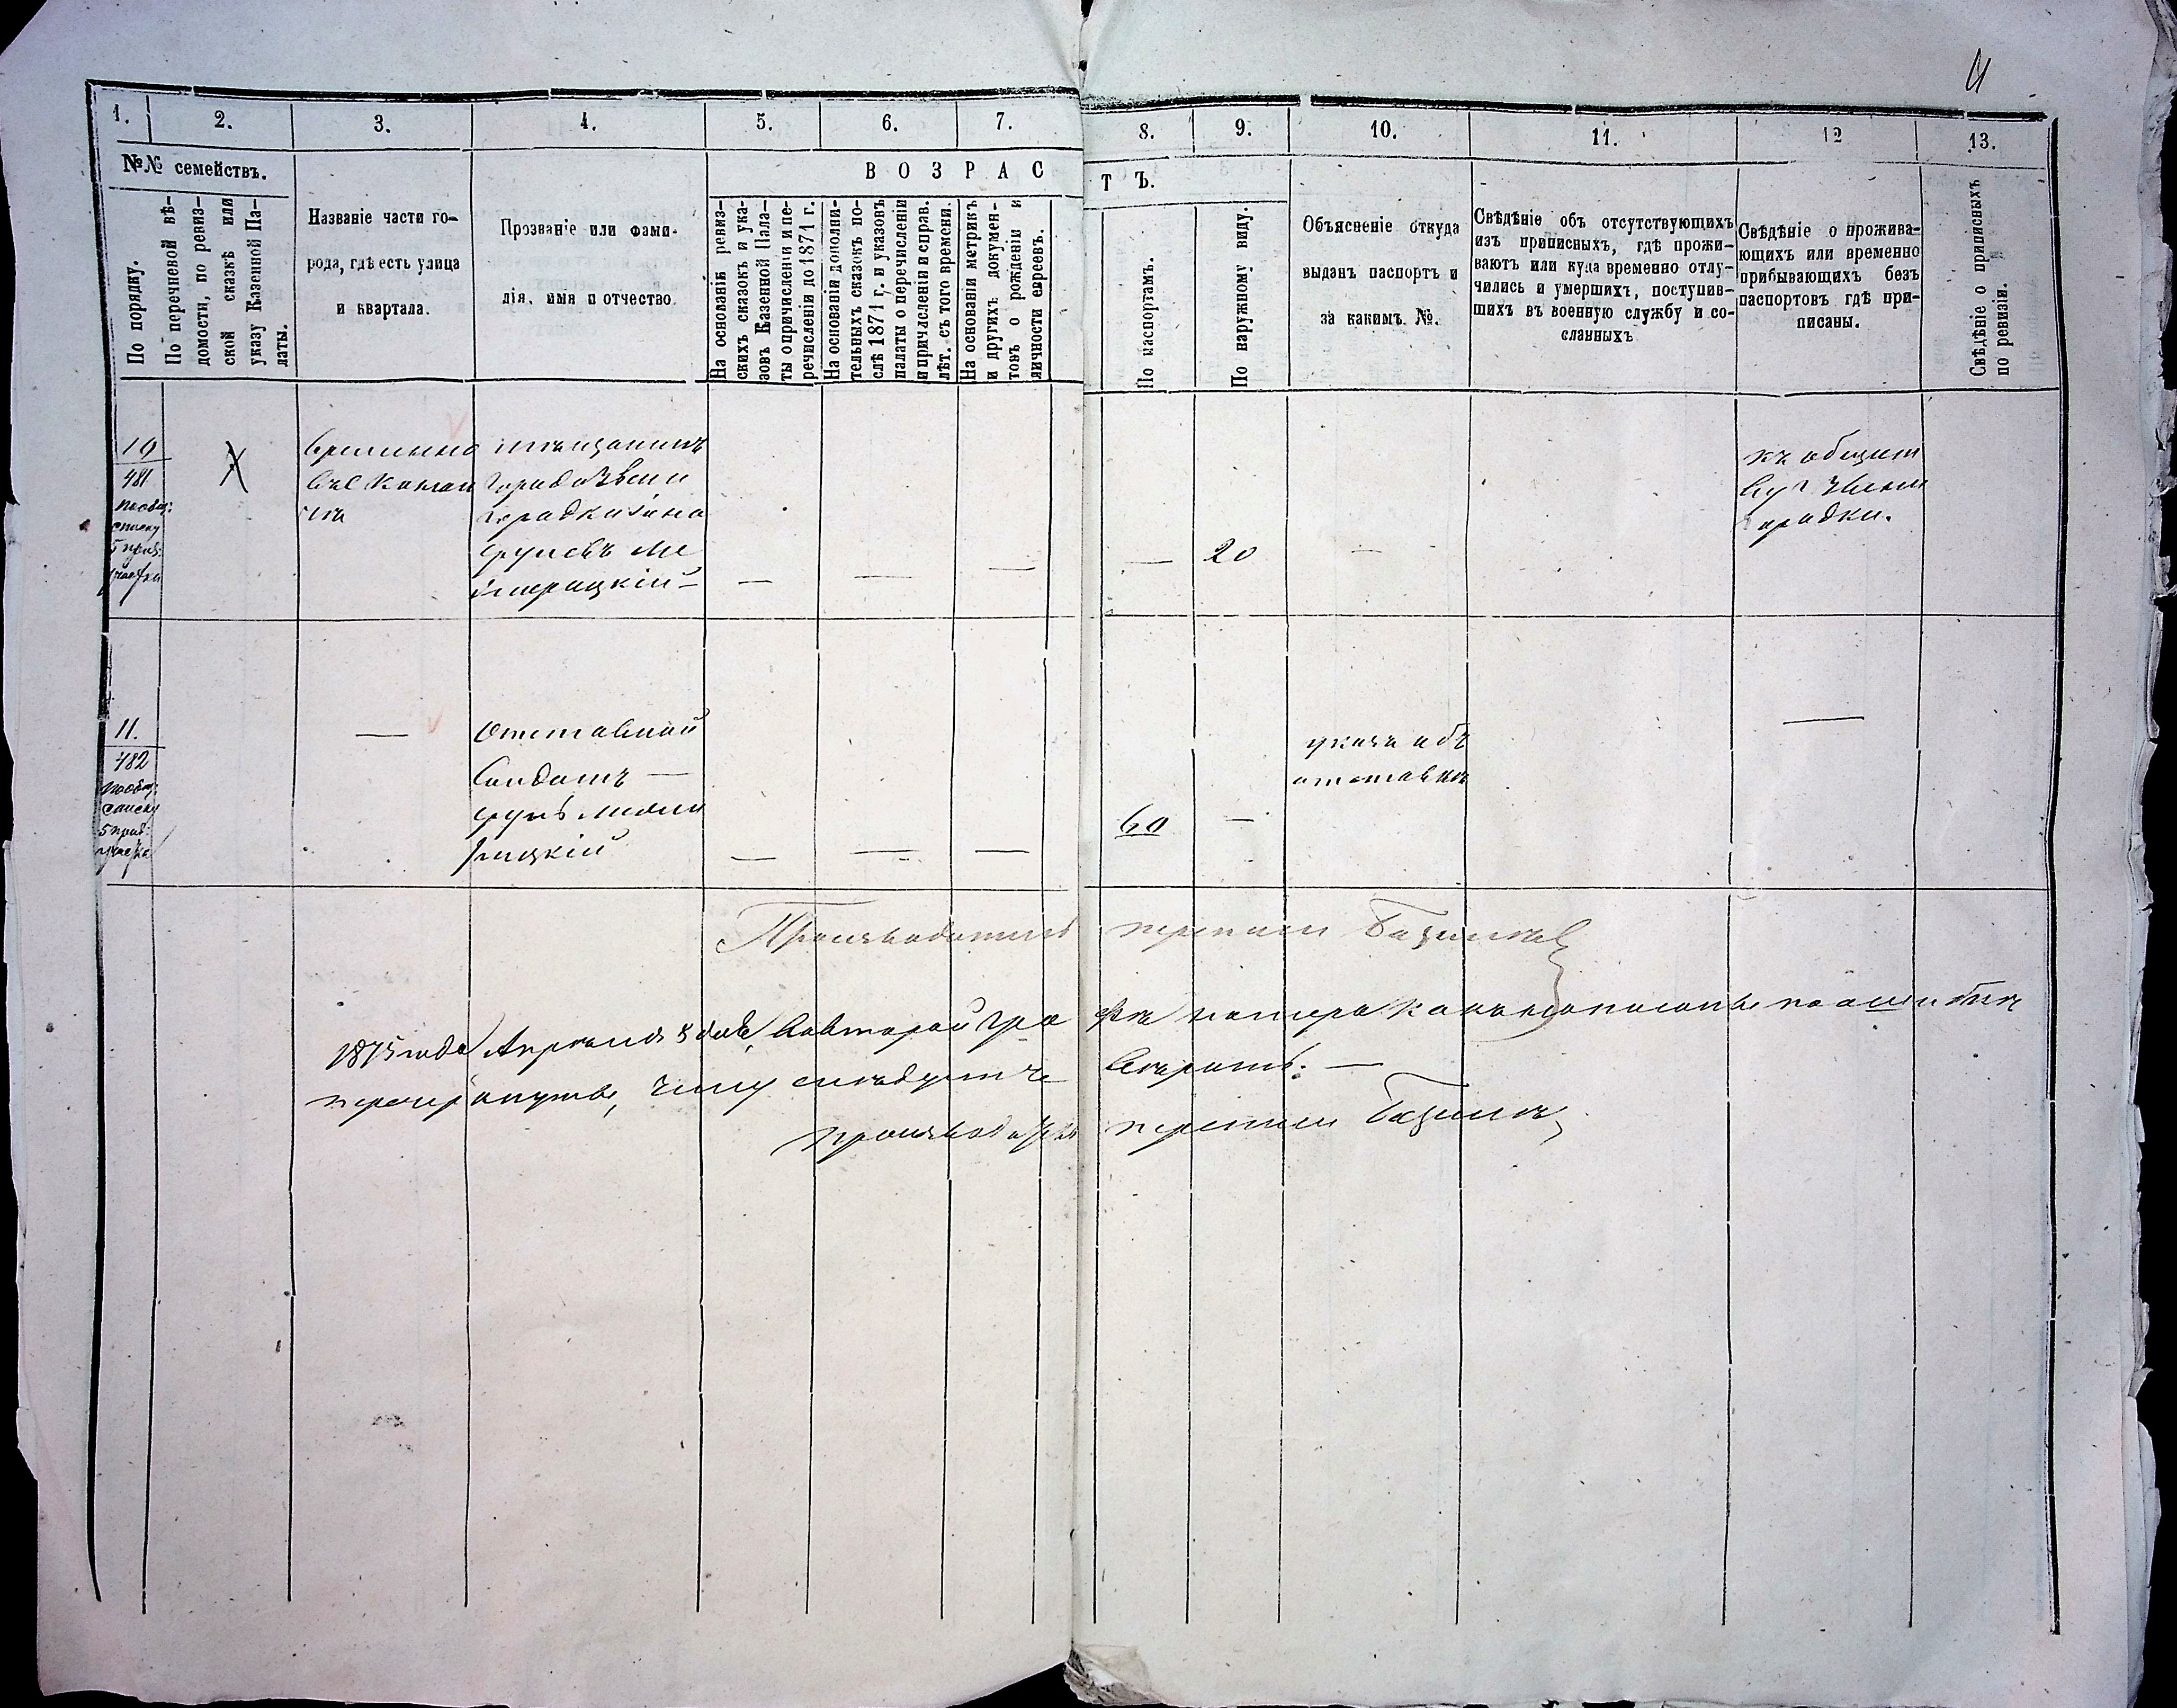 1. 2. 3. 4. 5. 6. 7. 8. 9. 10. 11. 12 13.
№№ семействъ.
По порядку.
По перечневой вѣ-
домости, по ревиз-
ской сказкѣ или
указу Казенной Па-
латы.
Названіе части го-
рода, гдѣ есть улица
и квартала.
Прозваніе или фами-
лія, имя и отчество.
ВОЗРАСТЪ.
На основаніи ревиз-
скихъ сказокъ и ука-
зовъ Казенной Пала-
ты о причисленіи и пе-
речисленіи до 1871 г.
На основаніи дополни-
тельныхъ сказокъ по-
слѣ 1871 г. и указовъ
палаты о перечисленіи
и причисленіи и справ.
лѣт. съ того времени.
На основаніи метрикъ
и другихъ докумен-
товъ о рожденіи и
личности евреевъ.
По паспортамъ.
По наружному виду.
Объясненіе откуда
выданъ паспортъ и
за какимъ №.
Свѣдѣніе объ отсутствующихъ
изъ приписныхъ, гдѣ прожи-
ваютъ или куда временно отлу-
чились и умершихъ, поступив-
шихъ въ военную службу и со-
сланныхъ
Свѣдѣніе о прожива-
ющихъ или временно
прибывающихъ безъ
паспортовъ гдѣ при-
писаны.
Свѣдѣніе о приписныхъ
по ревизіи.
10
481
списку
5 приз:
участка
временно
мѣщанинъ
города Звени
городки
— — — — 20 —
къ общест
ву г. Звени
городки.
11.
482
списку
5 приз:
участка
—
Отставной
Солдатъ —
— — — 60 —
указъ объ
отставкѣ
—
Производитель переписи
1875 года Апреля 8 дня, во второй гра
фѣ номера какъ написаны по ошибкѣ
перечеркнуты, чему слѣдуетъ
вѣрить: —
производитель переписи